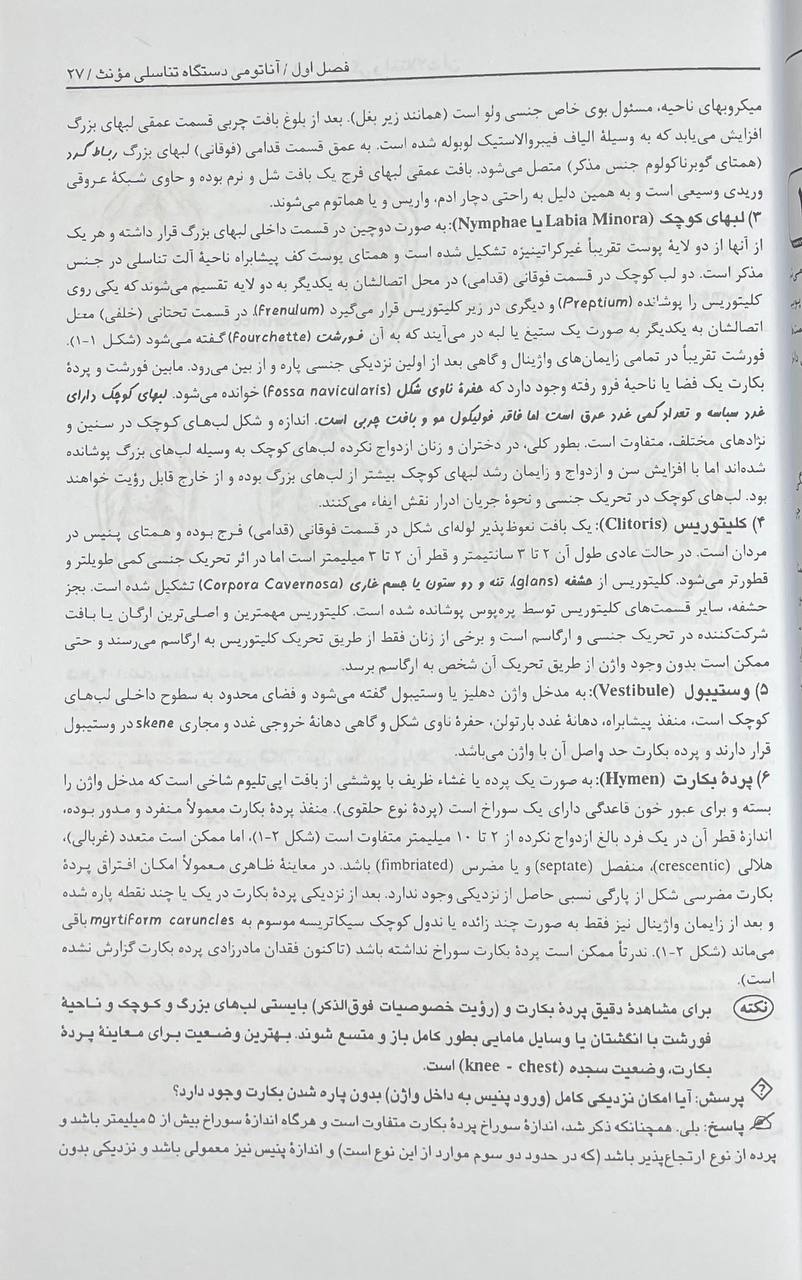 فصل اول / آناتومی دستگاه تناسلی مؤنث / ۲۷
میکروبهای ناحیه، مسئول بوی خاص جنسی ولو است (همانند زیر بغل). بعد از بلوغ بافت چربی قسمت عمقی لبهای بزرگ
افزایش می‌یابد که به وسیلهٔ الیاف فیبروالاستیک لوبوله شده است. به عمق قسمت قدامی (فوقانی) لبهای بزرگ رباط گرد
(همتای گوبرناکولوم جنس مذکر) متصل می‌شود. بافت عمقی لبهای فرج یک بافت شل و نرم بوده و حاوی شبکهٔ عروقی
وریدی وسیعی است و به همین دلیل به راحتی دچار ادم، واریس و یا هماتوم می‌شوند.
۳) لبهای کوچک (Labia Minora یا Nymphae): به صورت دو چین در قسمت داخلی لبهای بزرگ قرار داشته و هر یک
از آنها از دو لایهٔ پوست تقریباً غیرکراتینیزه تشکیل شده است و همتای پوست کف پیشابراه ناحیهٔ آلت تناسلی در جنس
مذکر است. دو لب کوچک در قسمت فوقانی (قدامی) در محل اتصالشان به یکدیگر به دو لایه تقسیم می‌شوند که یکی روی
کلیتوریس را پوشانده (Preptium) و دیگری در زیر کلیتوریس قرار می‌گیرد (Frenulum). در قسمت تحتانی (خلفی) محل
اتصالشان به یکدیگر به صورت یک ستیغ یا لبه در می‌آیند که به آن فورشت (Fourchette) گفته می‌شود (شکل ۱-۱).
فورشت تقریباً در تمامی زایمان‌های واژینال و گاهی بعد از اولین نزدیکی جنسی پاره و از بین می‌رود. مابین فورشت و پردهٔ
بکارت یک فضا یا ناحیهٔ فرو رفته وجود دارد که حفرهٔ ناوی شکل (Fossa navicularis) خوانده می‌شود. لبهای کوچک دارای
غدد سباسه و تعداد کمی غدد عرق است اما فاقد فولیکول مو و بافت چربی است. اندازه و شکل لب‌های کوچک در سنین و
نژادهای مختلف، متفاوت است. بطور کلی، در دختران و زنان ازدواج نکرده لب‌های کوچک به وسیله لب‌های بزرگ پوشانده
شده‌اند اما با افزایش سن و ازدواج و زایمان رشد لبهای کوچک بیشتر از لب‌های بزرگ بوده و از خارج قابل رؤیت خواهند
بود. لب‌های کوچک در تحریک جنسی و نحوهٔ جریان ادرار نقش ایفاء می‌کنند.
۴) کلیتوریس (Clitoris): یک بافت نعوظ‌پذیر لوله‌ای شکل در قسمت فوقانی (قدامی) فرج بوده و همتای پنیس در
مردان است. در حالت عادی طول آن ۲ تا ۳ سانتیمتر و قطر آن ۲ تا ۳ میلیمتر است اما در اثر تحریک جنسی کمی طویلتر و
قطورتر می‌شود. کلیتوریس از حشفه (glans)، تنه و دو ستون یا جسم غاری (Corpora Cavernosa) تشکیل شده است. بجز
حشفه، سایر قسمت‌های کلیتوریس توسط پره‌پوس پوشانده شده است. کلیتوریس مهمترین و اصلی‌ترین ارگان یا بافت
شرکت‌کننده در تحریک جنسی و ارگاسم است و برخی از زنان فقط از طریق تحریک کلیتوریس به ارگاسم می‌رسند و حتی
ممکن است بدون وجود واژن از طریق تحریک آن شخص به ارگاسم برسد.
۵) وستیبول (Vestibule): به مدخل واژن دهلیز یا وستیبول گفته می‌شود و فضای محدود به سطوح داخلی لب‌های
کوچک است، منفذ پیشابراه، دهانهٔ غدد بارتولن، حفرهٔ ناوی شکل و گاهی دهانهٔ خروجی غدد و مجاری skene در وستیبول
قرار دارند و پرده بکارت حد واصل آن با واژن می‌باشد.
۶) پردهٔ بکارت (Hymen): به صورت یک پرده یا غشاء ظریف با پوششی از بافت اپی‌تلیوم شاخی است که مدخل واژن را
بسته و برای عبور خون قاعدگی دارای یک سوراخ است (پردهٔ نوع حلقوی). منفذ پردهٔ بکارت معمولاً منفرد و مدور بوده،
اندازهٔ قطر آن در یک فرد بالغ ازدواج نکرده از ۲ تا ۱۰ میلیمتر متفاوت است (شکل ۲-۱)، اما ممکن است متعدد (غربالی)،
هلالی (crescentic)، منفصل (septate) و یا مضرس (fimbriated) باشد. در معاینهٔ ظاهری معمولاً امکان افتراق پردهٔ
بکارت مضرسی شکل از پارگی نسبی حاصل از نزدیکی وجود ندارد. بعد از نزدیکی پردهٔ بکارت در یک یا چند نقطه پاره شده
و بعد از زایمان واژینال نیز فقط به صورت چند زائده یا ندول کوچک سیکاتریسه موسوم به myrtiform caruncles باقی
می‌ماند (شکل ۲-۱). ندرتاً ممکن است پردهٔ بکارت سوراخ نداشته باشد (تاکنون فقدان مادرزادی پرده بکارت گزارش نشده
است).
نکته برای مشاهدهٔ دقیق پردهٔ بکارت و (رؤیت خصوصیات فوق‌الذکر) بایستی لب‌های بزرگ و کوچک و ناحیهٔ
فورشت با انگشتان یا وسایل مامایی بطور کامل باز و متسع شوند. بهترین وضعیت برای معاینهٔ پردهٔ
بکارت، وضعیت سجده (knee - chest) است.
? پرسش: آیا امکان نزدیکی کامل (ورود پنیس به داخل واژن) بدون پاره شدن بکارت وجود دارد؟
پاسخ: بلی. همچنانکه ذکر شد، اندازهٔ سوراخ پردهٔ بکارت متفاوت است و هرگاه اندازهٔ سوراخ بیش از ۵ میلیمتر باشد و
پرده از نوع ارتجاع‌پذیر باشد (که در حدود دو سوم موارد از این نوع است) و اندازهٔ پنیس نیز معمولی باشد و نزدیکی بدون